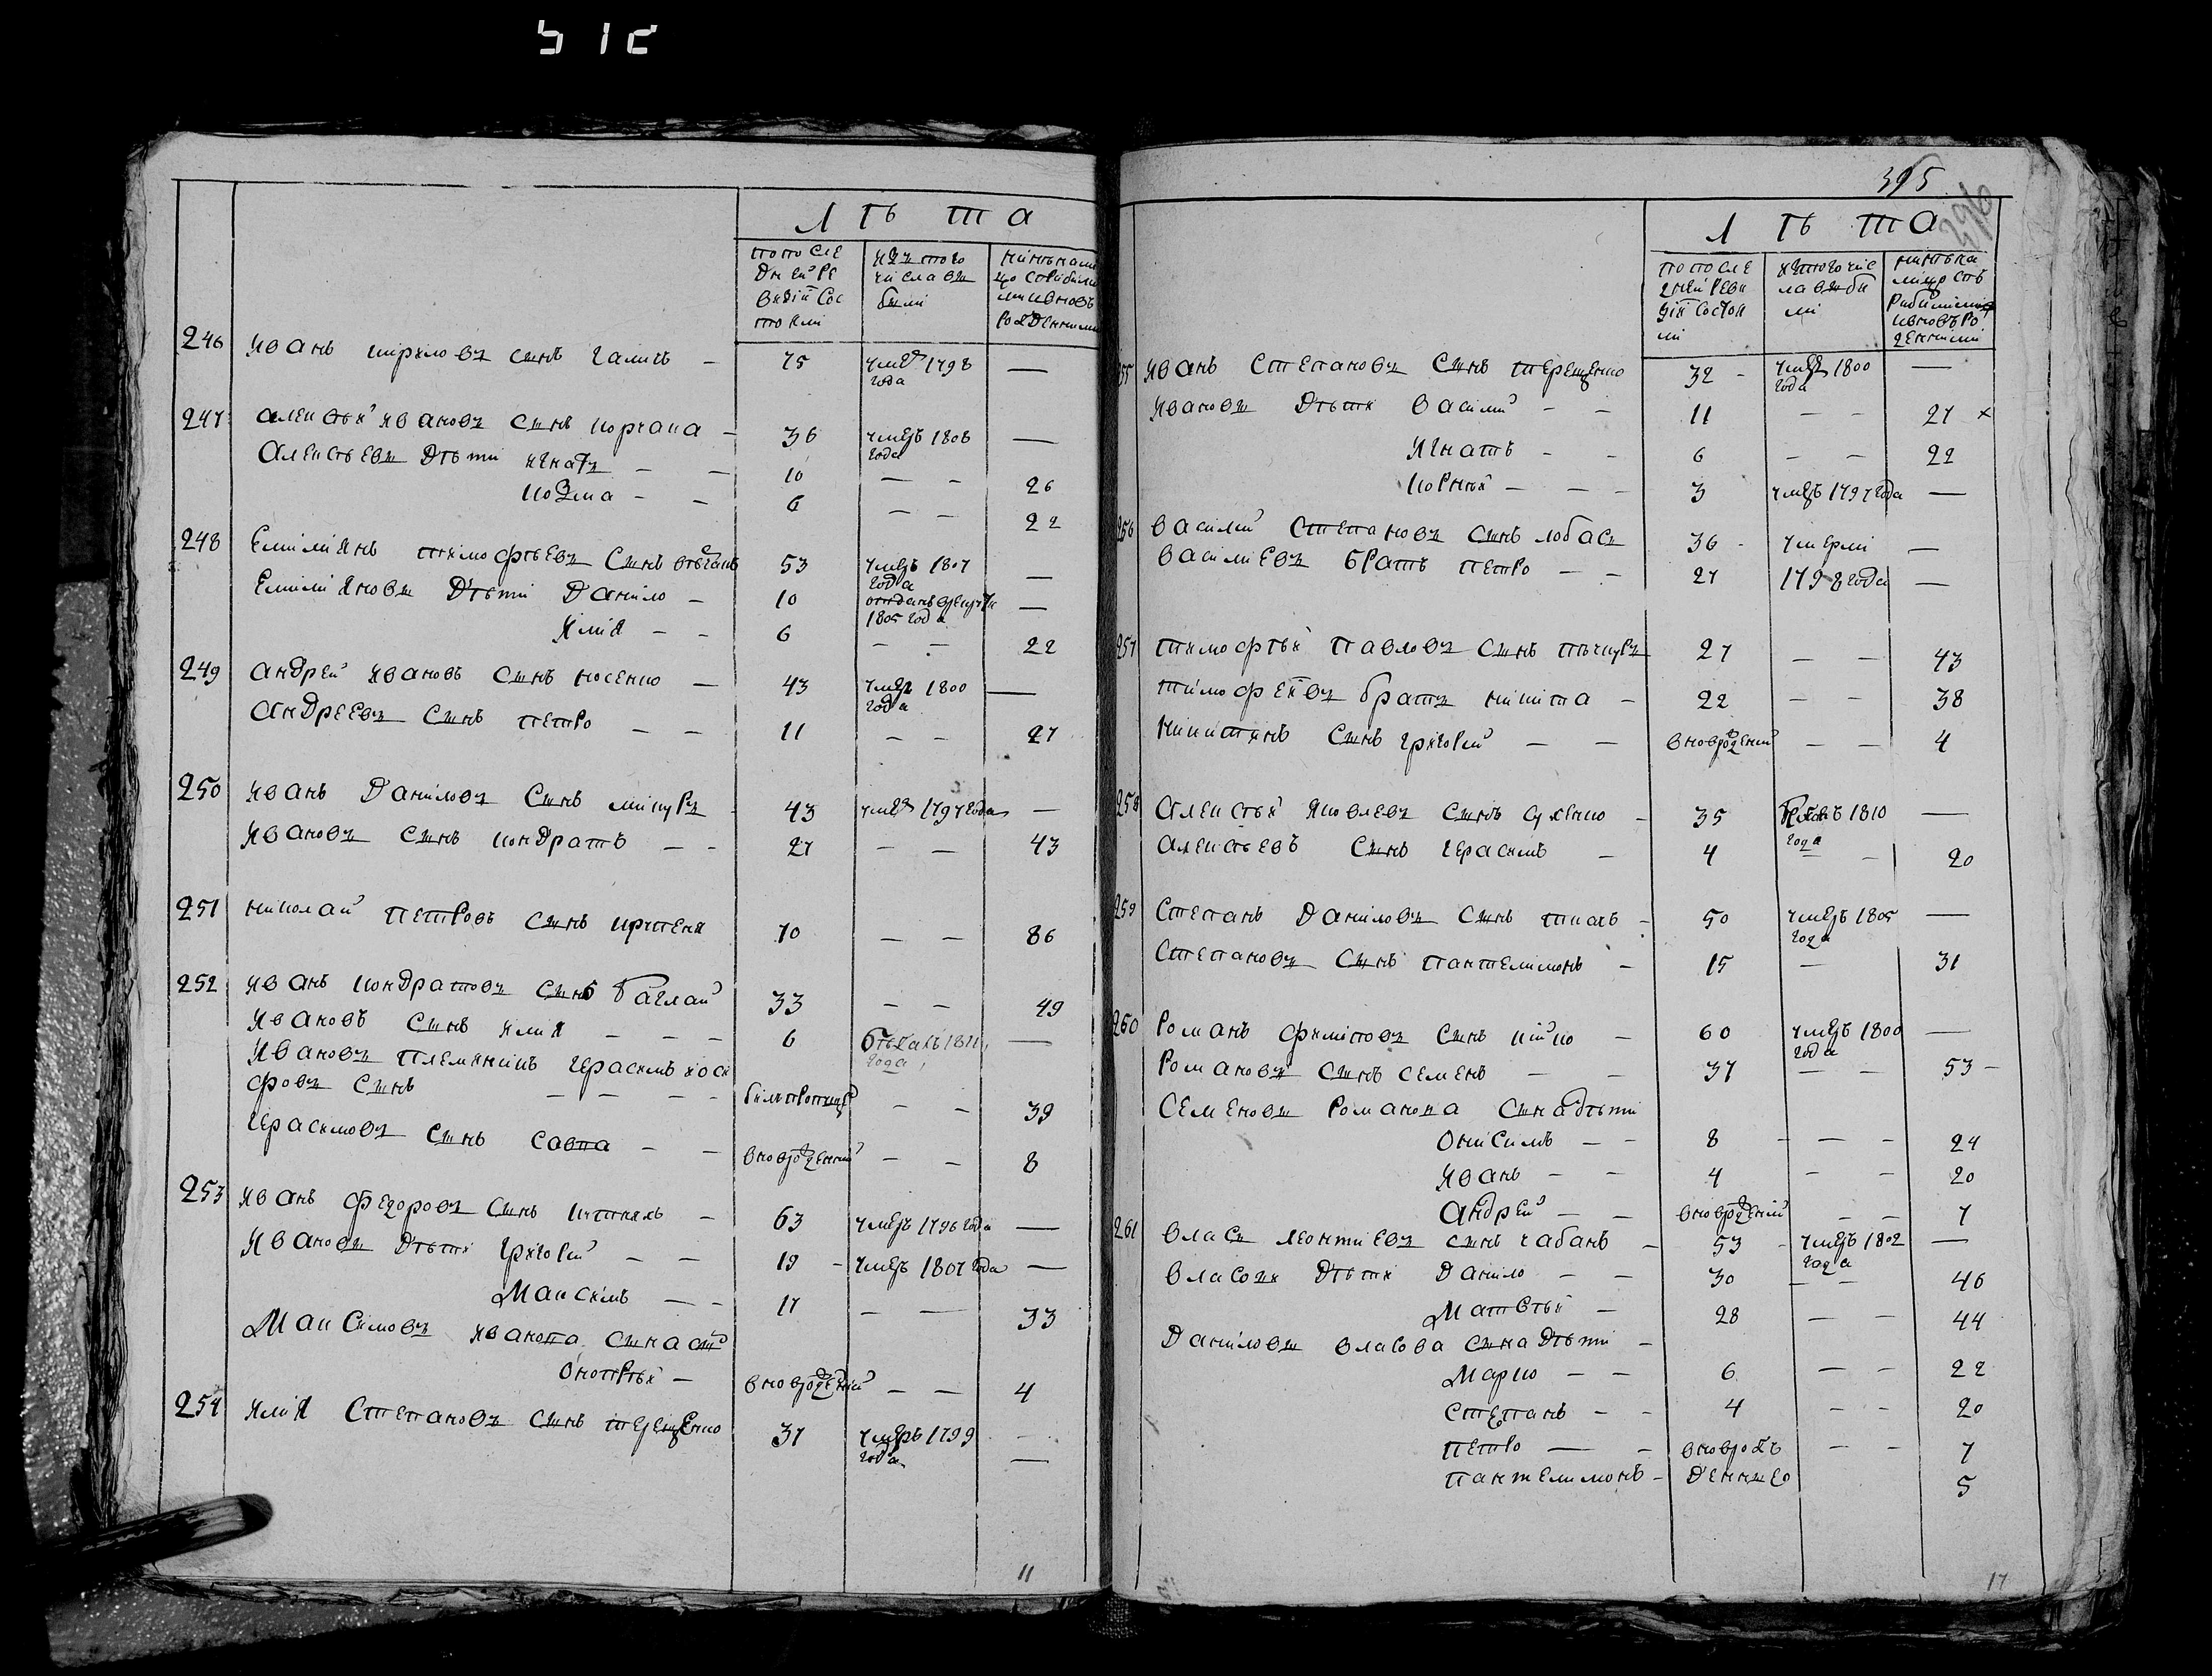 395
296
Лѣта
по после
дней ре
визіи сос
тояли
изъ того
числа вы
были
ныне на ли
цо с прибылими
и вновь
рожденними
246 Иванъ Кириловъ сынъ Галичъ — 75 умер 1798 года —
247 Алексѣй Ивановъ сынъ Корчака — 36 умеръ 1808 года —
Алексѣевы дѣти Игнатъ — — 10 — — 26
Козма — — 6 — — 22
248 Емилиянъ Тимофѣевъ сынъ 53 умеръ 1807 года —
Емилияновы дѣти Данило — 10 отданъ врекруты 1805 года —
Илия — — 6 — — 22
249 Андрей Ивановъ сынъ Носенко — 43 умер 1800 года —
Андреевъ сынъ Петро — — 11 — — 27
250 Иванъ Даниловъ сынъ 43 умер 1797 года —
Ивановъ сынъ Кондратъ — — 27 — — 43
251 Николай Петровъ сынъ 70 — — 86
252 Иванъ Кондратовъ сынъ Баглай 33 — — 49
Ивановъ сынъ Илия — — — 6 бѣжалъ 1811 года —
Ивановъ племяникъ Герасимъ иоси
фовъ сынъ — — — — былъ пропущ — — 39
Герасимовъ сынъ Савка — — вноврожденний — — 8
253 Иванъ Федоровъ сынъ — 63 умеръ 1796 года —
Ивановы дѣти Григорий — — 19 — умеръ 1807 года —
Максимъ — — 17 — — 33
Максимовъ Иванова сына сынъ
Онопрѣй — вноврожденний — — 4
254 Илия Степановъ сынъ Терещенко 37 умеръ 1799 года —
11
Лѣта
по после
дней реви
зіи состоя
ли
изтого чис
ла выбы
ли
ныне на
лицо съ
прибылими
и вновь ро
денними
255 Иванъ Степановъ сынъ Терещенко 32 - умер 1800 года —
Ивановы дѣти Василий — — 11 — — 27 x
Игнатъ — — 6 — — 22
Корнѣй — — — 3 умеръ 1797 года —
256 Василий Степановъ сынъ Лобасъ 36 - умерли —
Василиевъ братъ Петро — — 27 1798 года —
257 Тимофѣй Павловъ сынъ 27 — — 43
Тимофеевъ братъ Никита — 22 — — 38
Никитинъ сынъ Григорий — — вноврожденний — — 4
258 Алексѣй Яковлевъ сынъ Сухенко — 35 бѣжалъ 1810 года —
Алексѣевъ сынъ Герасимъ — 4 — — 20
259 Степанъ Даниловъ сынъ Ткачъ — 50 умеръ 1805 года —
Степановъ сынъ Пантелимонъ — 15 — 31
260 Романъ Филиповъ сынъ Кийко — 60 умеръ 1800 года —
Романовъ сынъ Семенъ — — 37 — — 53 —
Семеновы Романова сына дѣти
Онисимъ — — 8 — — 24
Иванъ — — 4 — — 20
Андрей — — вноврожденний — — 7
261 Власъ Леонтиевъ сынъ Чабанъ — 53 - умеръ 1802 года —
Власови дѣти Данило — — 30 — — 46
Матвѣй — 28 — — 44
Даниловы Власова сына дѣти —
Марко — — 6 — — 22
Степанъ — — 4 — — 20
Петро — — вноврож — — 7
Пантелимонъ — денные 5
17